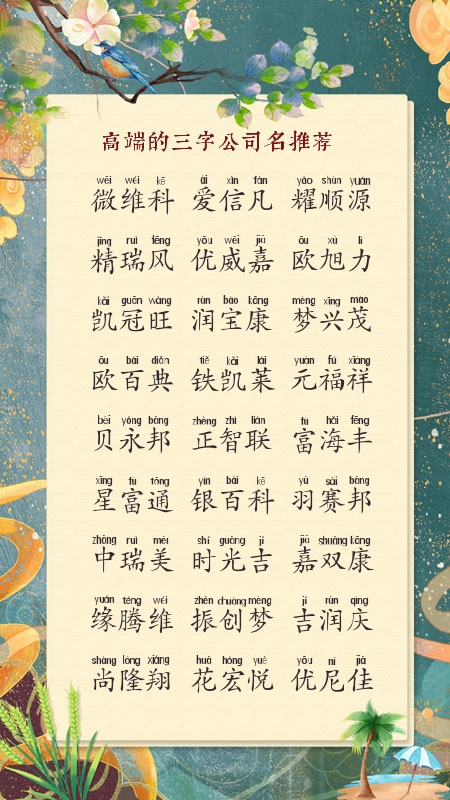 高端的三字公司名推荐
wēi wéi kē ài xìn fán yào shùn yuán
微维科 爱信凡 耀顺源
jīng ruì fēng yōu wēi jiā ōu xù lì
精瑞风 优威嘉 欧旭力
kǎi guān wàng rùn bǎo kāng mèng xīng mào
凯冠旺 润宝康 梦兴茂
ōu bǎi diǎn tiě kǎi lái yuán fú xiáng
欧百典 铁凯莱 元福祥
bèi yǒng bāng zhèng zhì lián fù hǎi fēng
贝永邦 正智联 富海丰
xīng fù tōng yín bǎi kē yǔ sài bāng
星富通 银百科 羽赛邦
zhōng ruì měi shí guāng jí jiā shuāng kāng
中瑞美 时光吉 嘉双康
yuán téng wéi zhèn chuàng mèng jí rùn qìng
缘腾维 振创梦 吉润庆
shàng lóng xiáng huā hóng yuè yōu ní jiā
尚隆翔 花宏悦 优尼佳